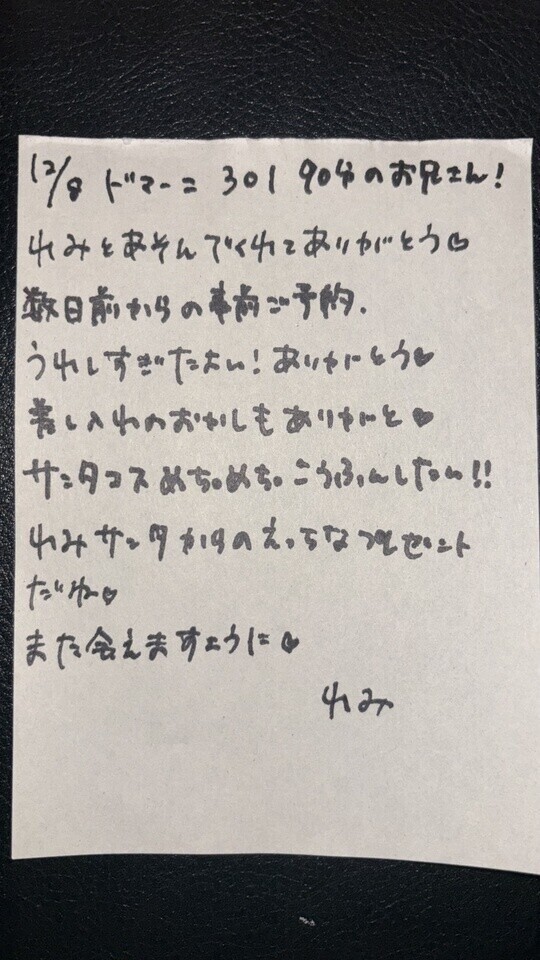 12/8 ドマーニ 301 90分のお兄さん!
れみとあそんでくれてありがとう♡
数日前からの事前ご予約.
うれしすぎたよい!ありがとう♥
差し入れのおかしもありがと♥
サンタコスめちゃめちゃこうふんしたい!!
れみサンタからのえっちなプレゼント
だよ♡
また会えますように♥
れみ